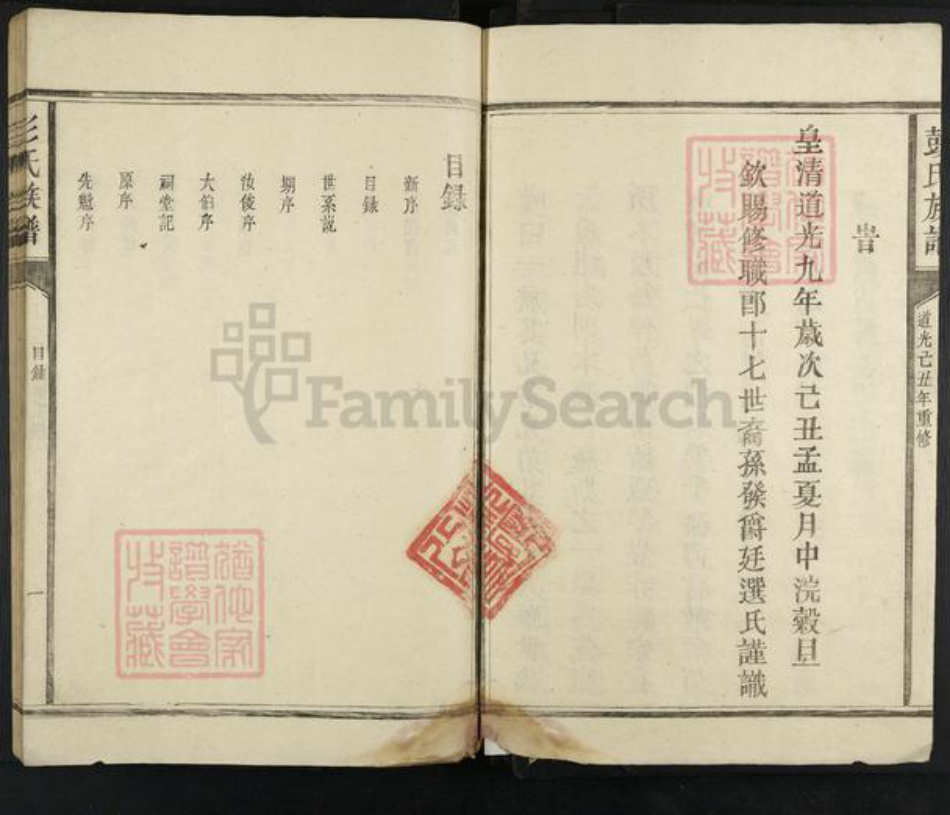 彭氏族譜
道光己丑年重修
旹
皇清道光九年歲次己丑孟夏月中浣穀旦
欽賜修職郎十七世裔孫發爵廷選氏謹識
猶他家譜學會收藏
目錄
新序
目錄
世系說
朝序
汝俊序
大伯序
祠堂記
原序
先魁序
猶他家譜學會收藏
彭氏族譜
目錄
一
FamilySearch